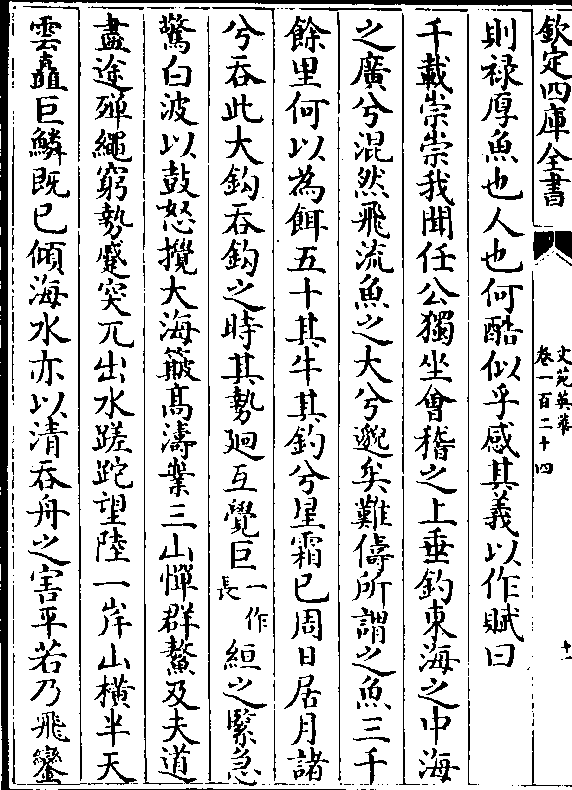 欽定四庫全書
文苑英華
卷一百二十四
十一
則禄厚魚也人也何酷似乎感其義以作賦曰
千載崇崇我聞任公獨坐㑹稽之上垂釣東海之中海
之廣兮混然飛流魚之大兮邈矣難儔所謂之魚三千
餘里何以為餌五十其牛其釣兮星霜已周日居月諸
兮吞此大鈎吞鈎之時其勢廻互覺巨一作長絙之緊急
驚白波以鼓怒攪大海簸髙濤業三山憚群鰲及夫道
盡途殫繩窮勢蹙突兀出水蹉跎望陸一岸山横半天
雲矗巨鱗既已傾海水亦以清吞舟之害平若乃飛鑾